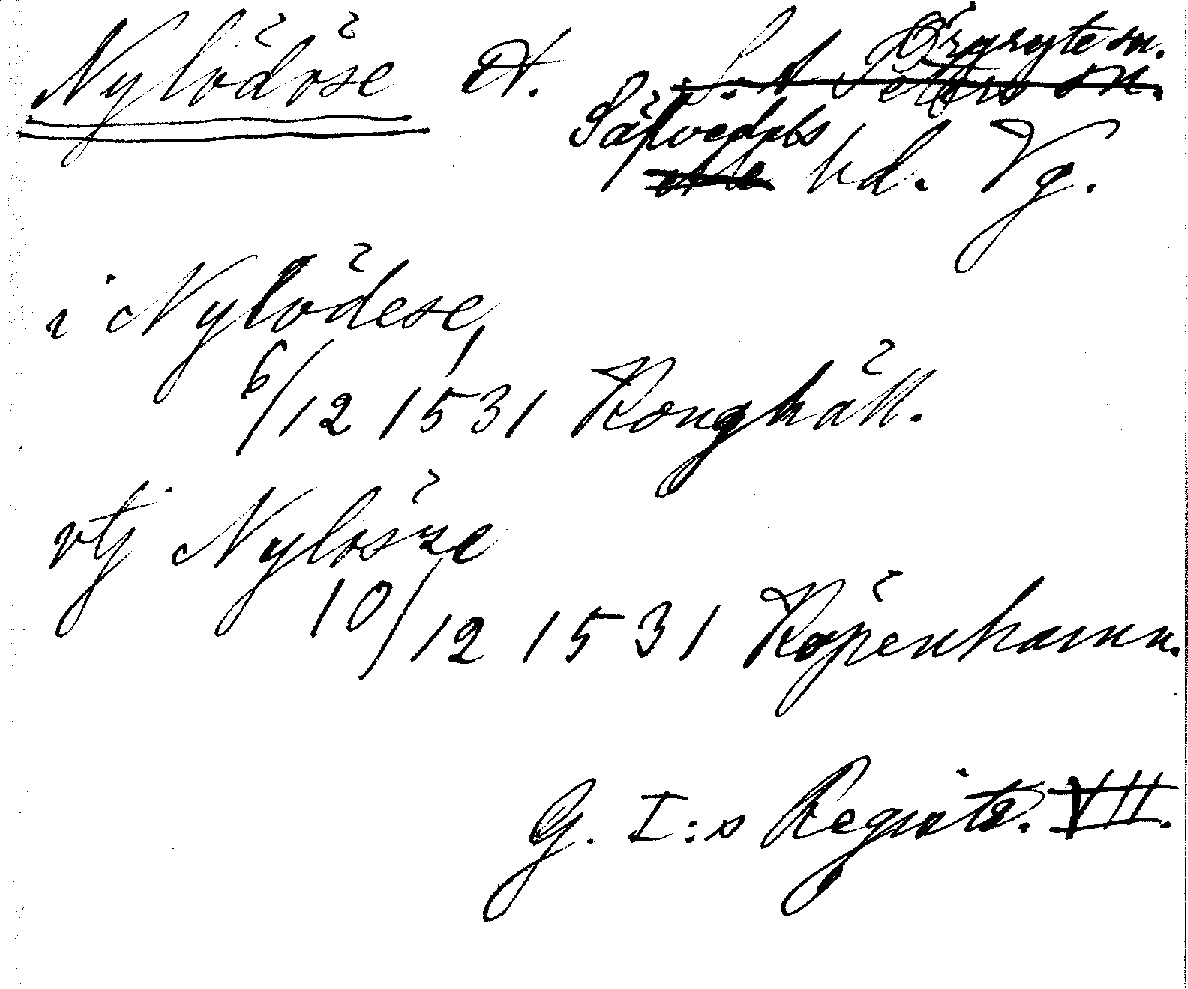 Nylödöse St. Örgryte sn.
S:t Peders sn.
Sävedals hd. Vg.
i Nylödese,
6/12 1531 Konghäll.
vtj Nylösze
10/12 1531 Köpenhamn.
G. I:s Registr. VII.